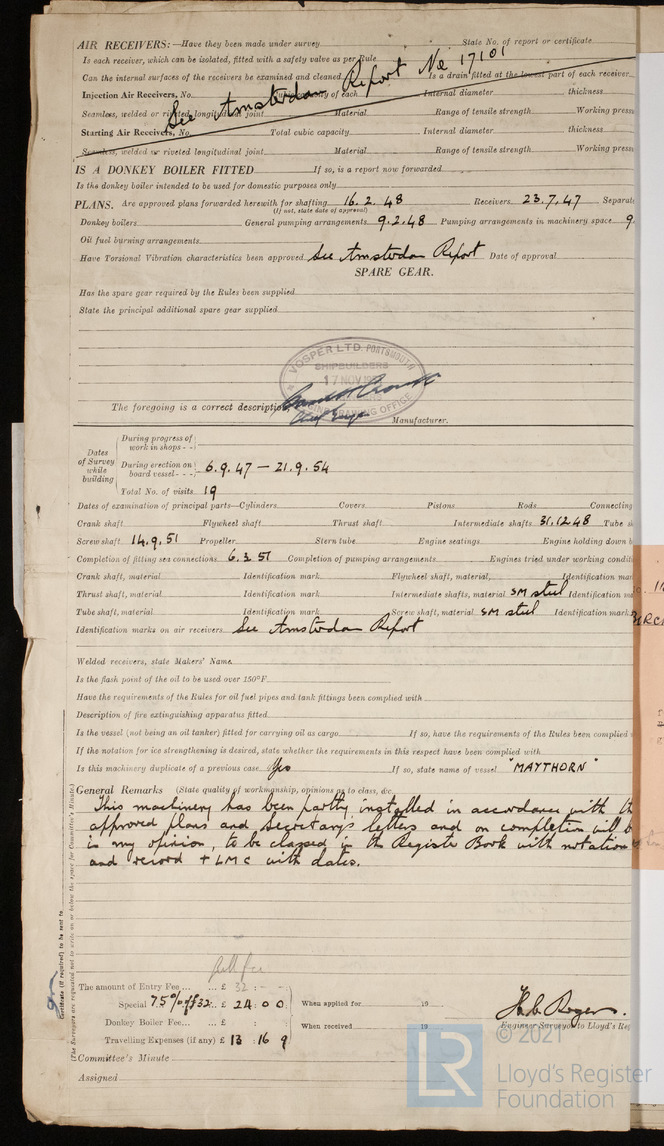 AIR RECEIVERS:—Have they been made under survey State No. of report or certificate
Is each receiver, which can be isolated, fitted with a safety valve as per Rule
Can the internal surfaces of the receivers be examined and cleaned Is a drain fitted at the lowest part of each receiver
See Amsterdam Report No 17101
Injection Air Receivers, No. Cubic capacity of each Internal diameter thickness
Seamless, welded or riveted longitudinal joint Material Range of tensile strength Working press
Starting Air Receivers, No. Total cubic capacity Internal diameter thickness
Seamless, welded or riveted longitudinal joint Material Range of tensile strength Working press
IS A DONKEY BOILER FITTED If so, is a report now forwarded
Is the donkey boiler intended to be used for domestic purposes only
PLANS. Are approved plans forwarded herewith for shafting 16.2.48 Receivers 23.7.47 Separat
(If not, state date of approval)
Donkey boilers General pumping arrangements 9.2.48 Pumping arrangements in machinery space 9.
Oil fuel burning arrangements
Have Torsional Vibration characteristics been approved See Amsterdam Report Date of approval
SPARE GEAR.
Has the spare gear required by the Rules been supplied
State the principal additional spare gear supplied
VOSPER LTD. PORTSMOUTH
SHIPBUILDERS
17 NOV
OFFICE
The foregoing is a correct description,
Manufacturer.
Dates of Survey while building
During progress of work in shops - -
During erection on board vessel - - - 6.9.47 — 21.9.54
Total No. of visits 19
Dates of examination of principal parts—Cylinders Covers Pistons Rods Connecting
Crank shaft Flywheel shaft Thrust shaft Intermediate shafts 31.12.48 Tube s
Screw shaft 14.9.51 Propeller Stern tube Engine seatings Engine holding down b
Completion of fitting sea connections 6.3.51 Completion of pumping arrangements Engines tried under working condit
Crank shaft, material Identification mark Flywheel shaft, material, Identification mar
Thrust shaft, material Identification mark Intermediate shafts, material SM steel Identification ma
Tube shaft, material Identification mark Screw shaft, material SM steel Identification mark
Identification marks on air receivers See Amsterdam Report
Welded receivers, state Makers' Name
Is the flash point of the oil to be used over 150°F.
Have the requirements of the Rules for oil fuel pipes and tank fittings been complied with
Description of fire extinguishing apparatus fitted
Is the vessel (not being an oil tanker) fitted for carrying oil as cargo If so, have the requirements of the Rules been complied
If the notation for ice strengthening is desired, state whether the requirements in this respect have been complied with
Is this machinery duplicate of a previous case Yes If so, state name of vessel "MAYTHORN"
General Remarks (State quality of workmanship, opinions as to class, &c.
This machinery has been partly installed in accordance with th
approved plans and Secretary's letters and on completion will b
in my opinion, to be classed in the Register Book with notation
and record + LMC with dates.
Certificate (if required) to be sent to
(The Surveyors are requested not to write on or below the space for Committee's Minute.)
full fee
The amount of Entry Fee ... £ 32 : - -
Special 75% of 32 ... £ 24 . 0 0 When applied for 19
Donkey Boiler Fee ... £ : :
When received 19
Travelling Expenses (if any) £ 13 : 16 9
H.C. Rogers.
Engineer Surveyor to Lloyd's Reg
Committee's Minute
Assigned
© 2021
LR
Lloyd's Register
Foundation